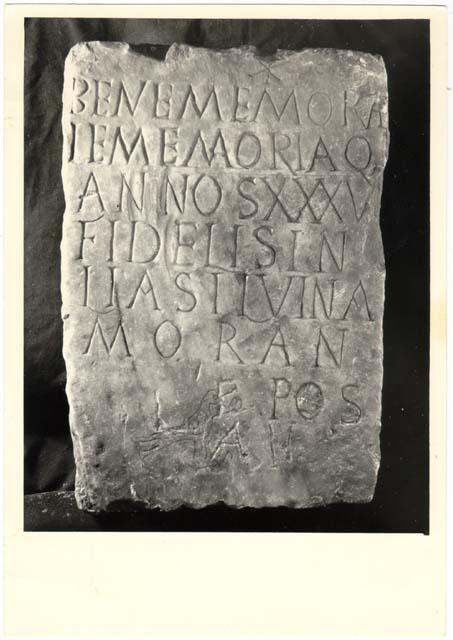 BENEMEMORA
IEMEMORIAQ
ANNOSXXXV
FIDELISIN
LIASILVINA
MORAN
POS